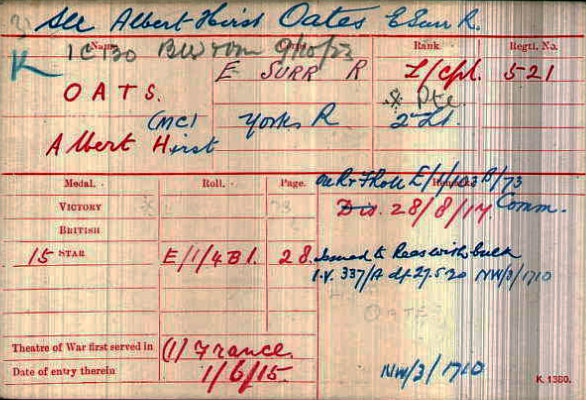 See Albert Hirst Oates E Surr R.
K IC 130 BW & VM 9/10/23
Name. Corps. Rank Regtl. No.
E SURR R L/Cpl. 521
OATS. * Pte
(MC) Yorks R 2 Lt
Albert Hirst
Medal. Roll. Page. Remarks
VICTORY * 73 Dis. 28/8/17 Comm.
BRITISH
15 STAR E/1/4 B1. 28. Issued & Recs with bulk
I.V. 337/A dt 27.5.20 NW/3/1710
OATES
Theatre of War first served in (1) France.
Date of entry therein 1/6/15. NW/3/1710
K. 1380.